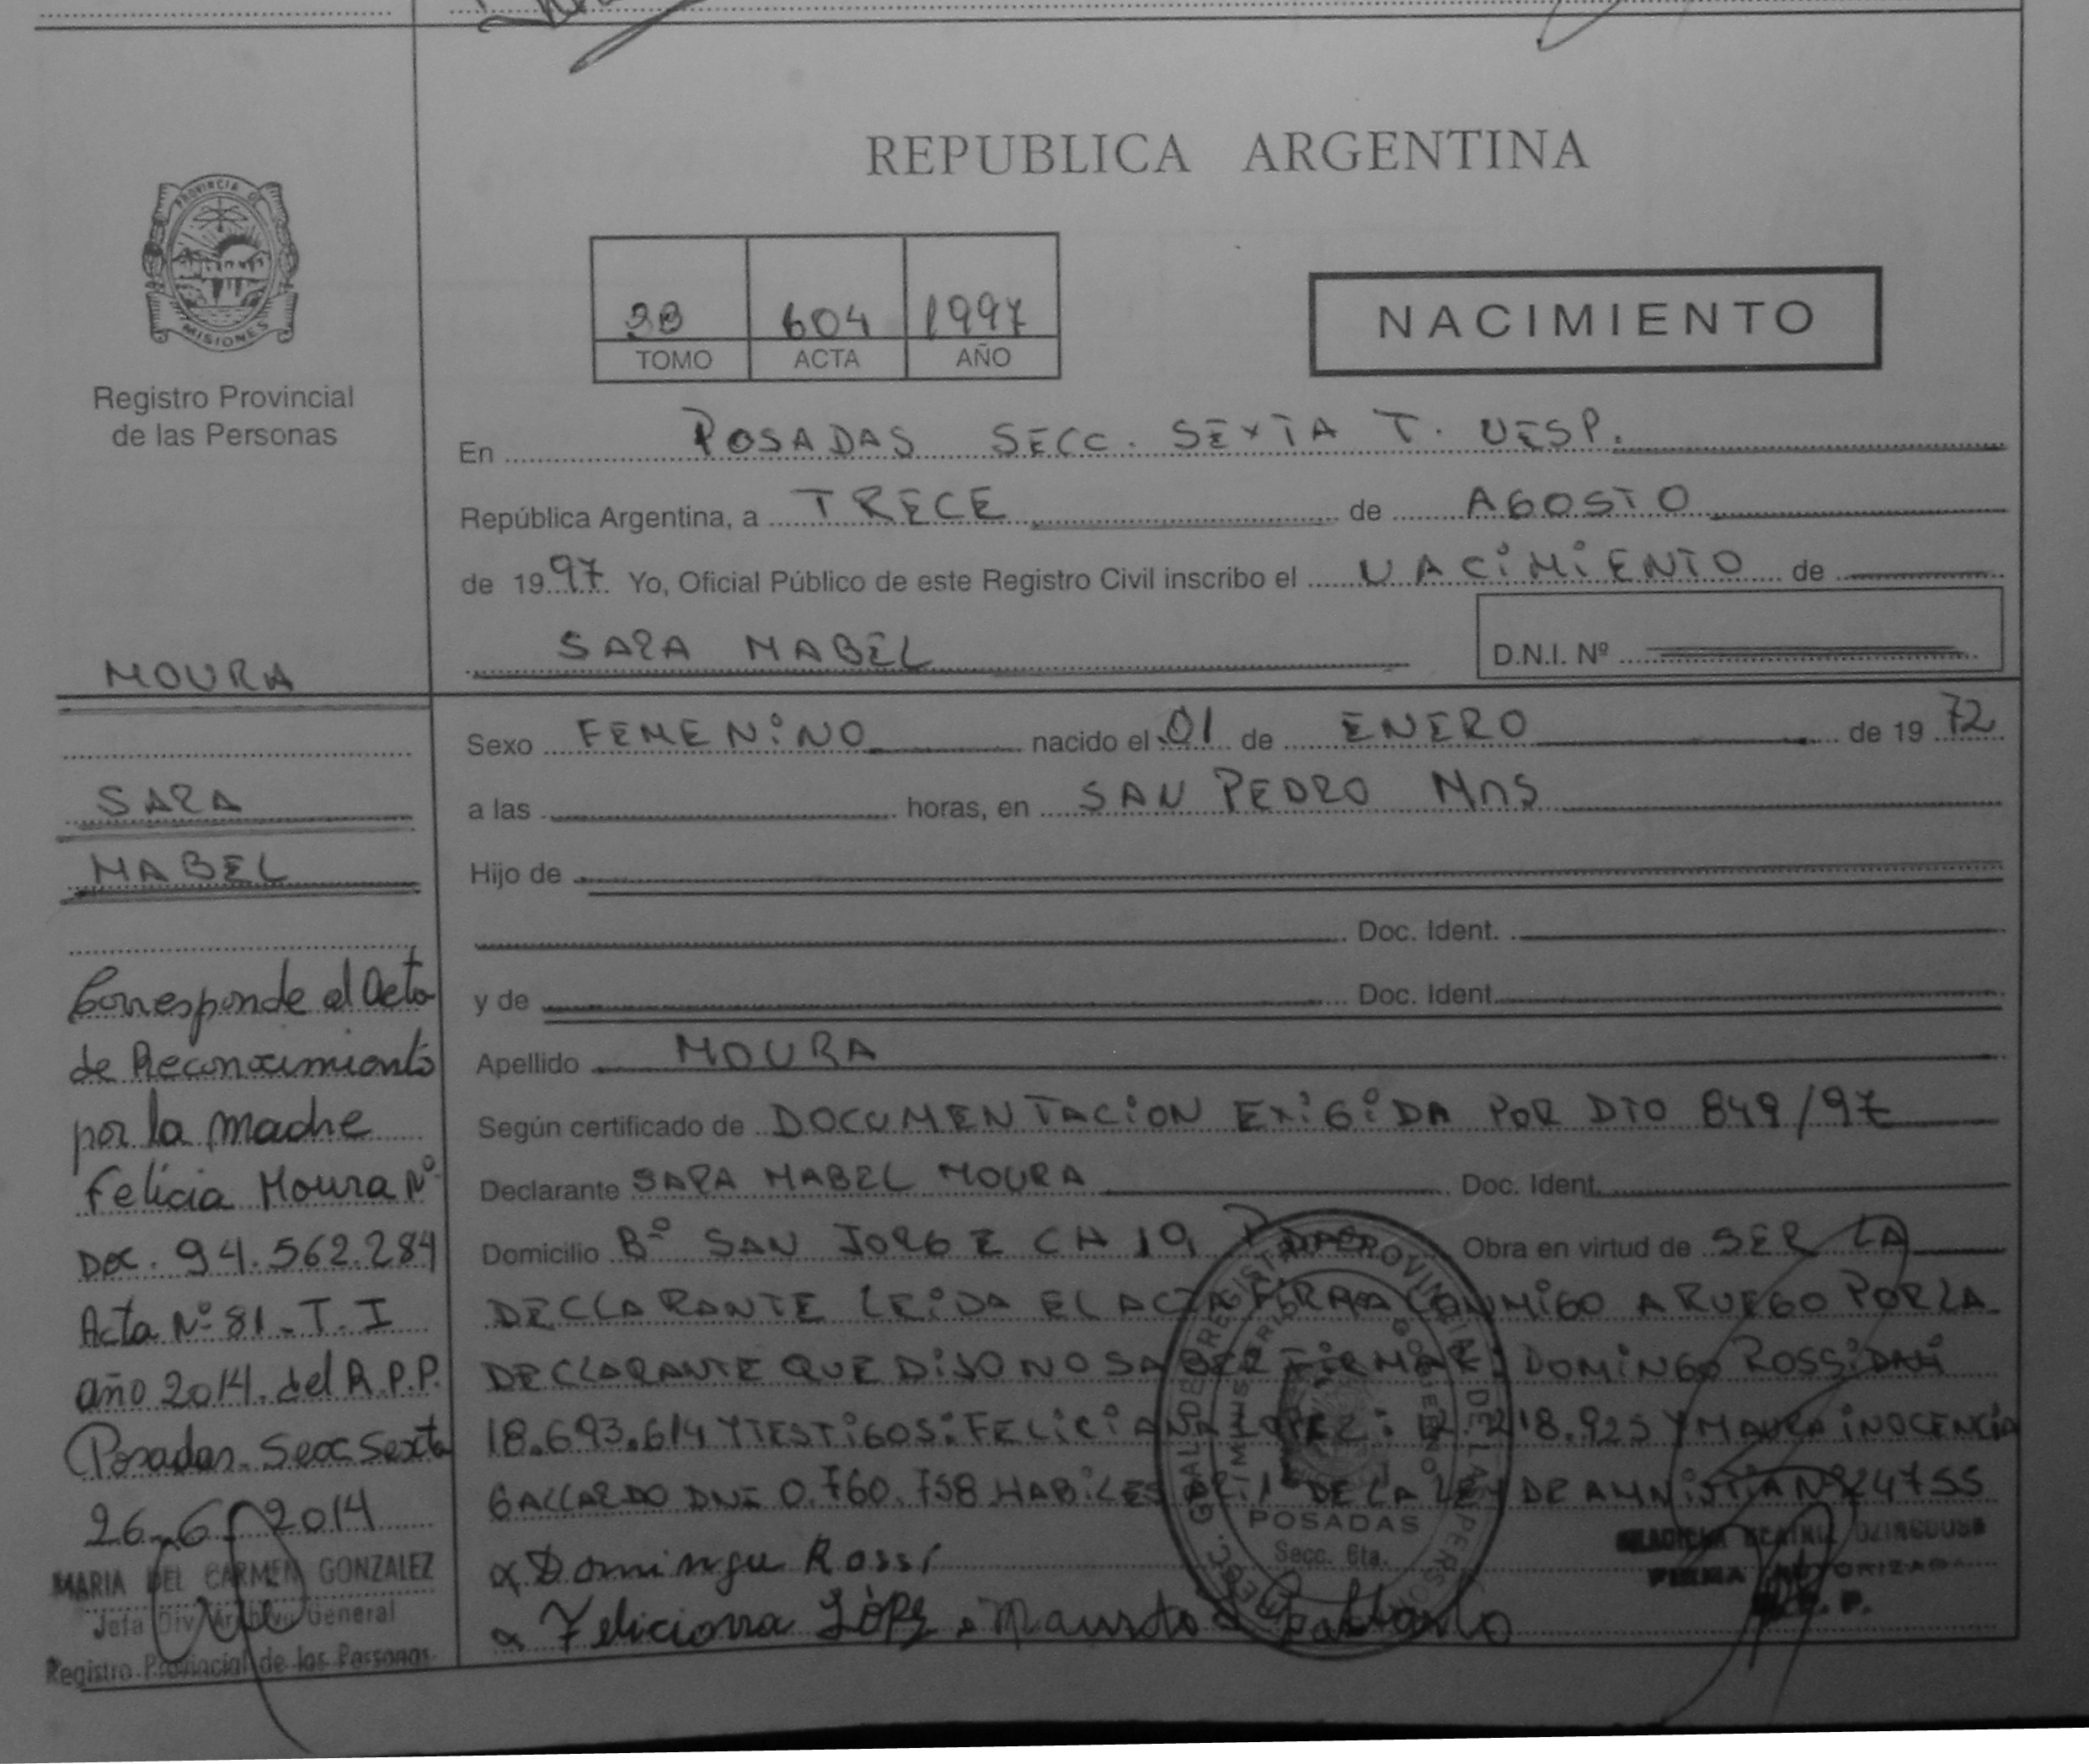 REPUBLICA ARGENTINA
PROVINCIA DE
MISIONES
Registro Provincial
de las Personas
604 1997
TOMO ACTA AÑO
NACIMIENTO
En POSADAS SECC. SEXTA T. VESP.
República Argentina, a TRECE de AGOSTO
de 1997 Yo, Oficial Público de este Registro Civil inscribo el NACIMIENTO de
SARA MABEL
D.N.I. Nº
MOURA
SARA
MABEL
Sexo FEMENINO nacido el 01 de ENERO de 1972
a las horas, en SAN PEDRO MNS
Hijo de
Doc. Ident.
y de Doc. Ident.
Apellido MOURA
Según certificado de DOCUMENTACION EXIGIDA POR DTO 849/97
Declarante SARA MABEL MOURA Doc. Ident.
Domicilio Bº SAN JORGE CH 19 PDAS Obra en virtud de SER LA
DECLARANTE LEIDA EL ACTA FIRMA CONMIGO A RUEGO POR LA
DECLARANTE QUE DIJO NO SABER FIRMAR: DOMINGO ROSSI DNI
18.693.614 Y TESTIGOS: FELICIANA LOPEZ: 218.925 Y MAURA INOCENCIA
GALLARDO DNI 0.760.758 HABILES DE LA LEY DE AMNISTIA Nº 24755
Domingu Rossi
Feliciona Lòpz Gallardo
Corresponde al Acta
de Reconocimiento
por la madre
Felicia Moura Nº
Doc. 94.562.284
Acta Nº 81 - T. I
año 2014. del R.P.P.
Posadas. Secc Sexta
26-6-2014
MARIA DEL CARMEN GONZALEZ
Jefa Div. Archivo General
Registro Provincial de las Personas
POSADAS
Secc. 6ta.
FIRMA AUTORIZADA
R. P. P.